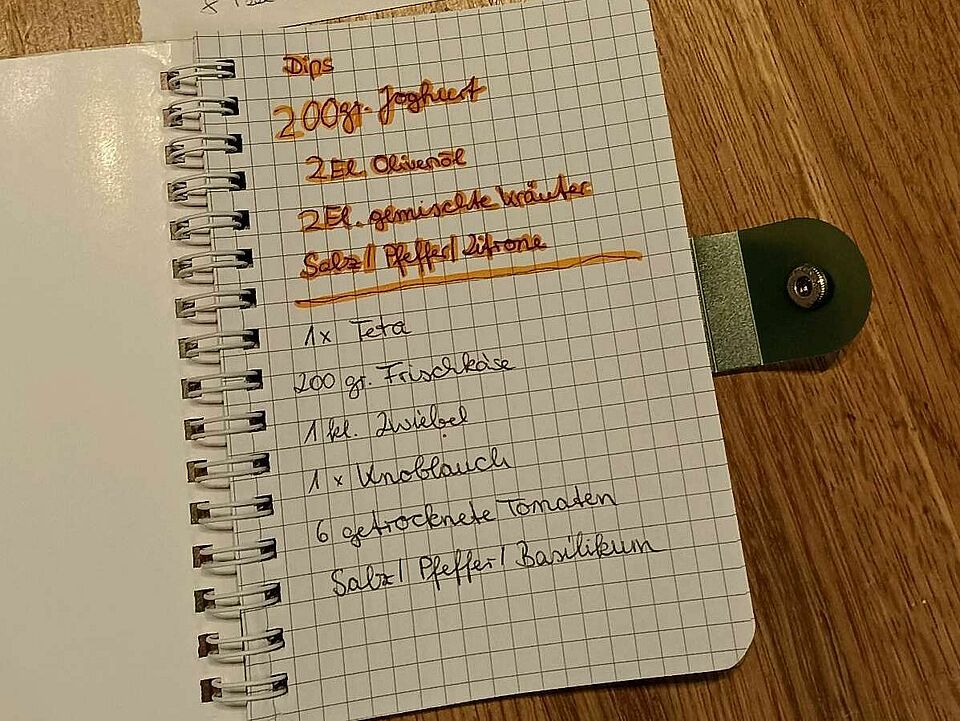 Dips
200gr. Joghurt
2El. Olivenöl
2El. gemischte Kräuter
Salz/ Pfeffer/ Zitrone
1x Feta
200 gr. Frischkäse
1 kl. Zwiebel
1 x Knoblauch
6 getrocknete Tomaten
Salz/ Pfeffer/ Basilikum